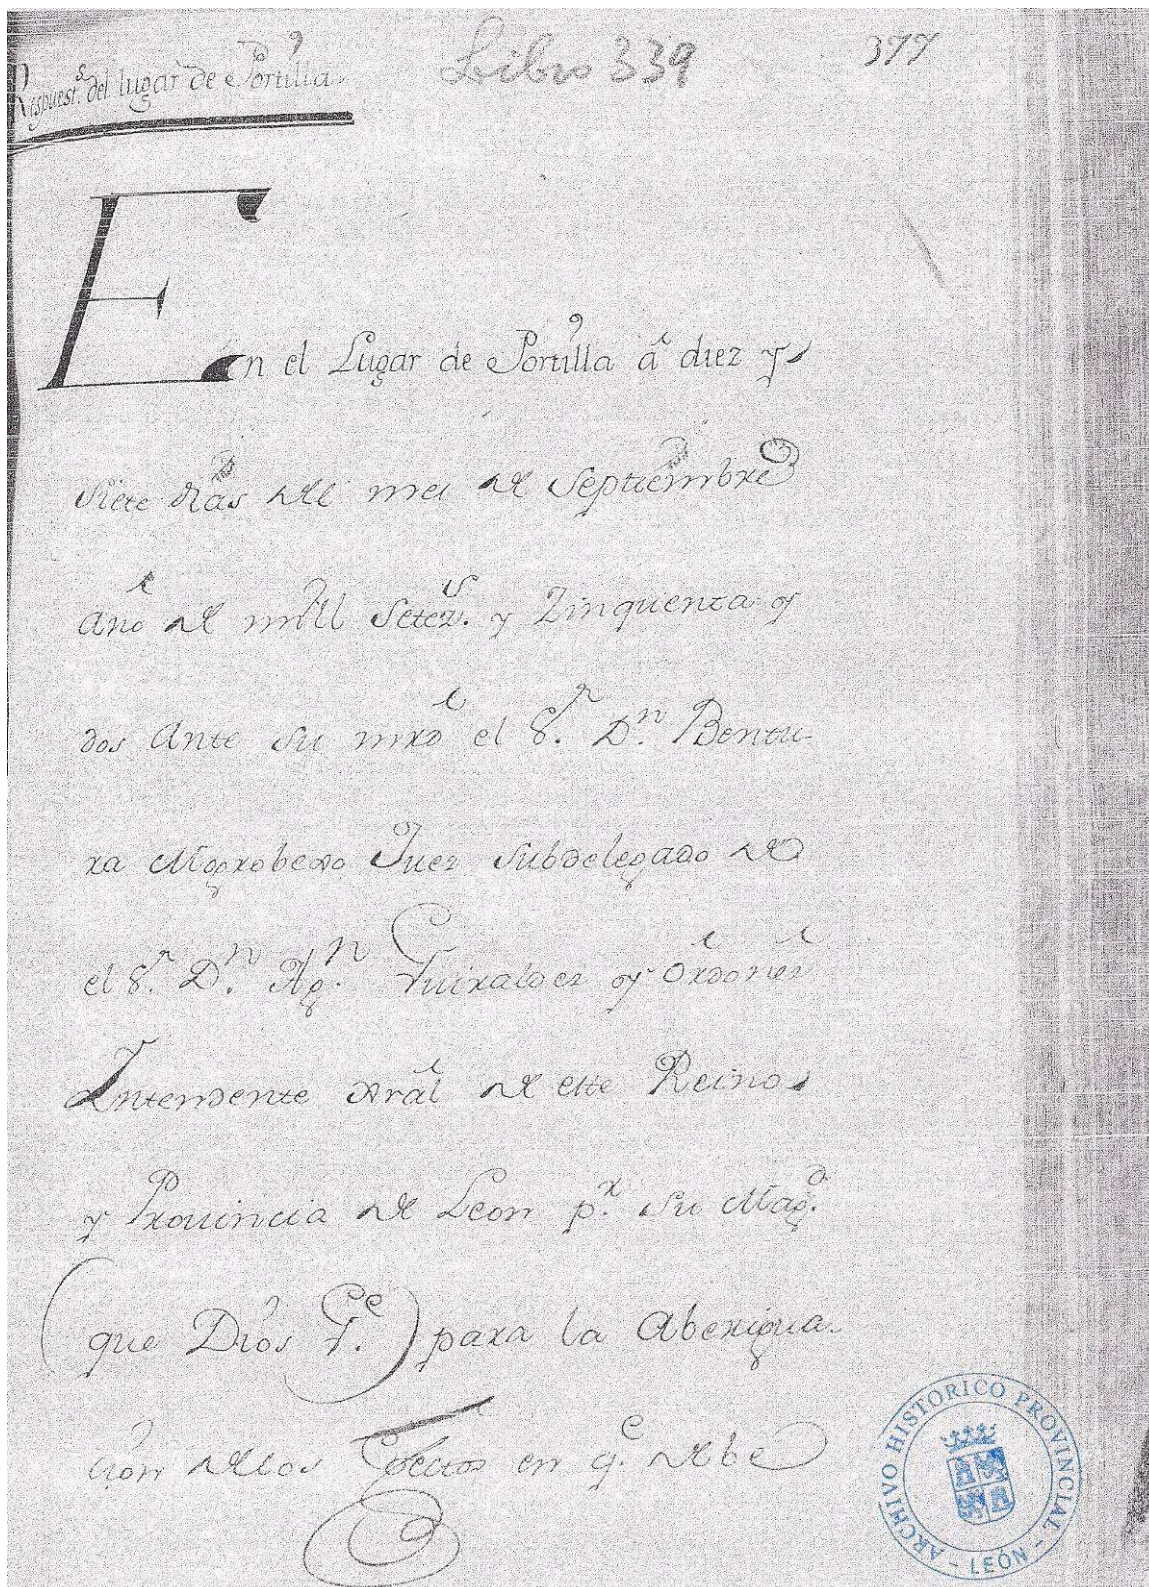 Libro 339
377
Respuest.s del lugar de Portilla
En el Lugar de Portilla â diez y
siete dias del mes de Septiembre
año de mill Setez.s y Zinquenta y
dos ante su mrd el S.r D.n Bentu-
ra Mogrobexo Juez subdelegado de
el S.r D.n Ag.n Guiraldez y Ordoñez
Intendente Gral de este Reino
y Prouincia de Leon p.r su Mag.d
(que Dios G.e) para la aberigua-
cion de los efectos en q.e debe
ARCHIVO HISTORICO PROVINCIAL - LEÓN -